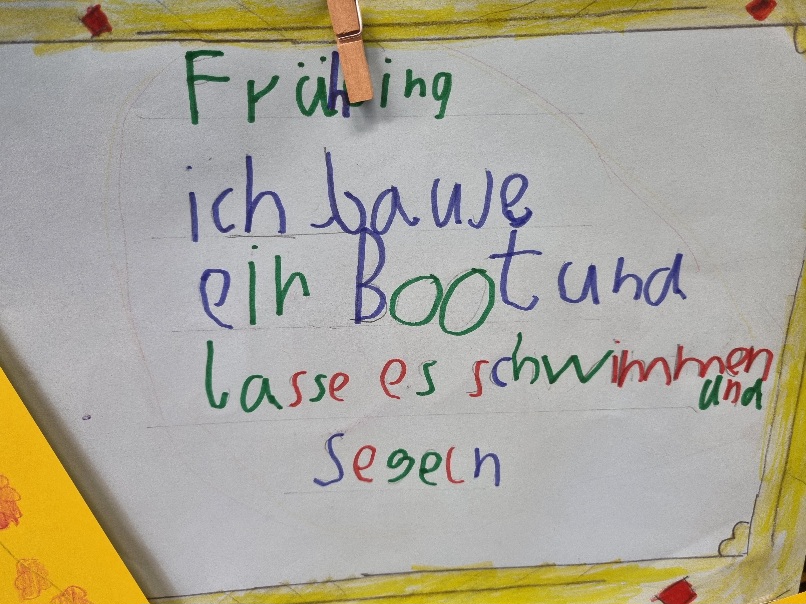 Frühling
ich bause
ein Boot und
lasse es schwimmen
und
segeln